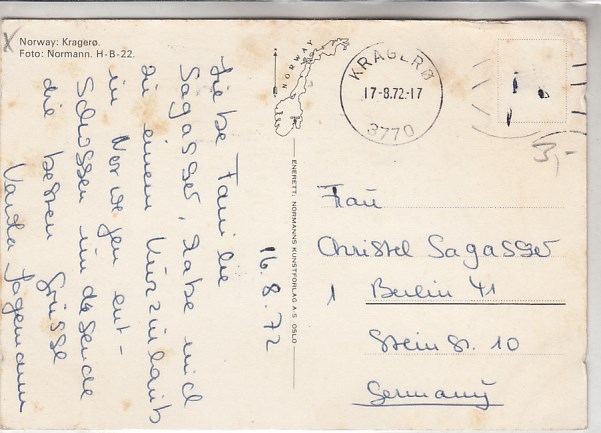 Norway: Kragerø.
Foto: Normann. H-B-22.
16.8.72
Liebe Familie
Sagasser, habe mich
zu einem Kurzurlaub
in Norwegen ent-
schlossen und sende
die besten Grüsse
Vanda Jagemann
NORWAY
KRAGERØ
17-8.72-17
3770
ENERETT: NORMANNS KUNSTFORLAG A.S. OSLO
Frau
Christel Sagasser
1 Berlin 41
Steinstr. 10
Germany